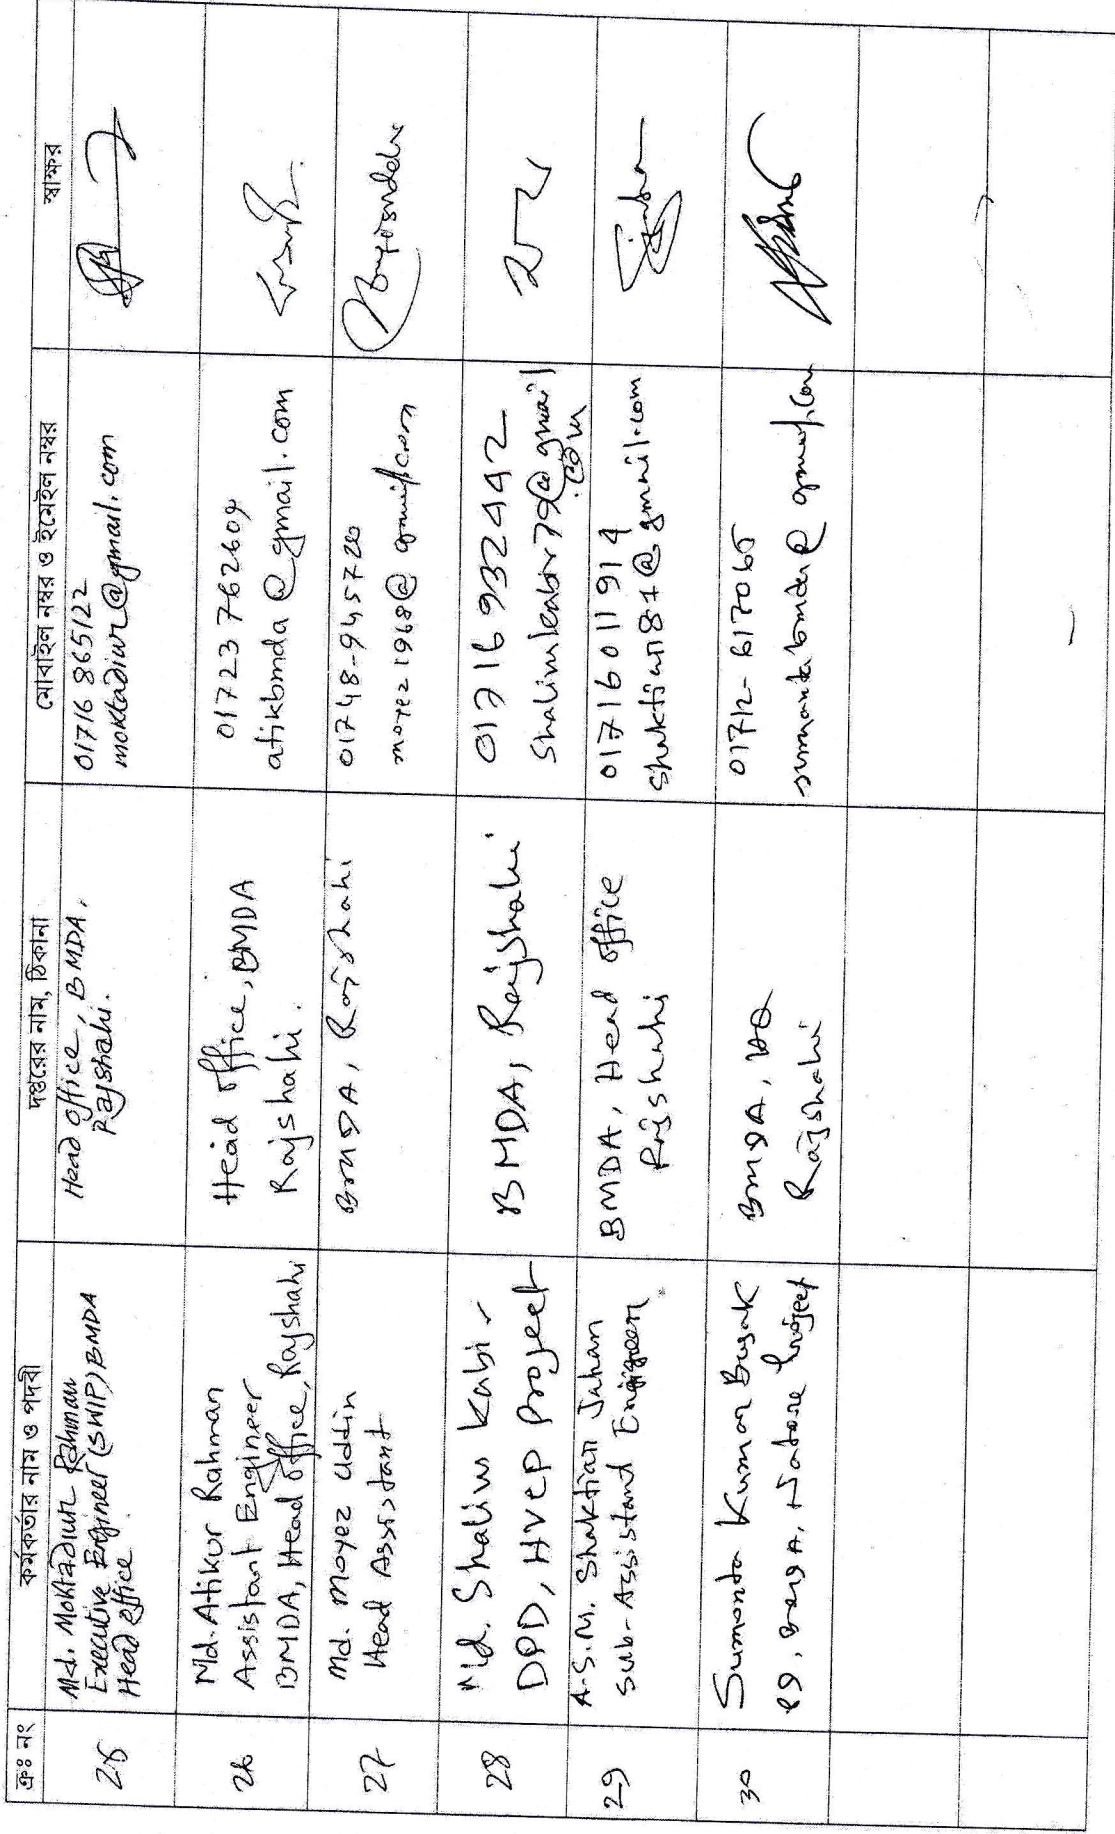 ক্রঃ নং
কর্মকর্তার নাম ও পদবী
দপ্তরের নাম, ঠিকানা
মোবাইল নম্বর ও ইমেইল নম্বর
স্বাক্ষর
25
Md. Moktadiur Rahman
Executive Engineer (SWIP) BMDA
Head office
Head office, BMDA,
Rajshahi.
01716 865122
moktadiur@gmail.com
26
Md. Atikur Rahman
Assistant Engineer
BMDA, Head office, Rajshahi
Head office, BMDA
Rajshahi.
01723762609
atikbmda@gmail.com
27
Md. Moyez Uddin
Head Assistant
BMDA, Rajshahi
01748-945720
moyez1968@gmail.com
28
Md. Shalim Kabir
DPD, HVCP Project
BMDA, Rajshahi
01716932442
@gmail
.com
29
A.S.M. Shaktian Jahan
Sub-Assistand Engigeer
BMDA, Head office
Rajshahi
01716011914
shaktian81@gmail.com
30
Sumonta Kumar Busak
BMDA, Natore Project
BMDA, HQ
Rajshahi
01712-617065
sumantabmda@gmail.com